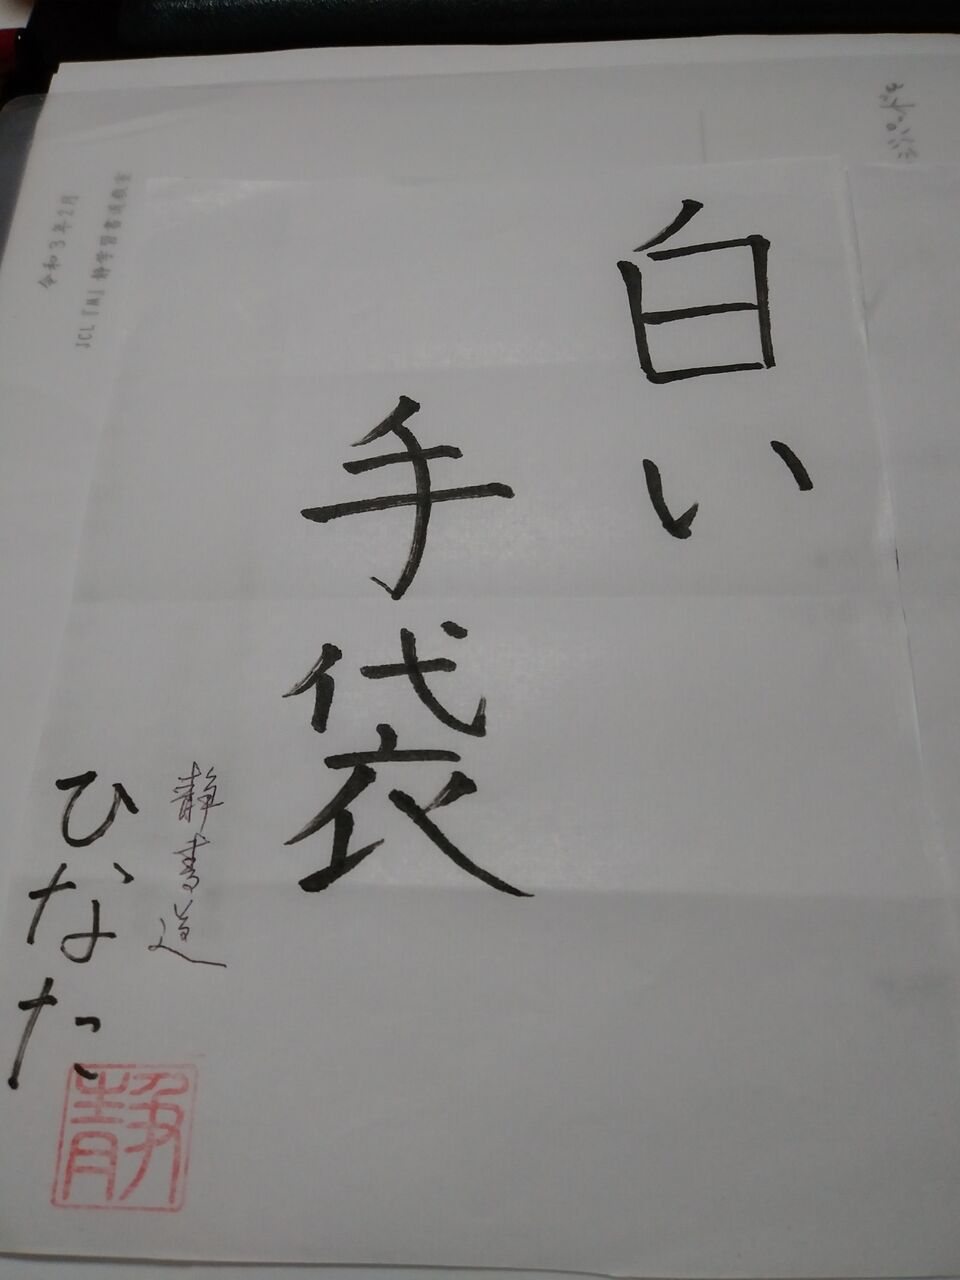 白い
手袋
静書道
ひなた
静
令和3年2月
JCL「M」静学習書道教室